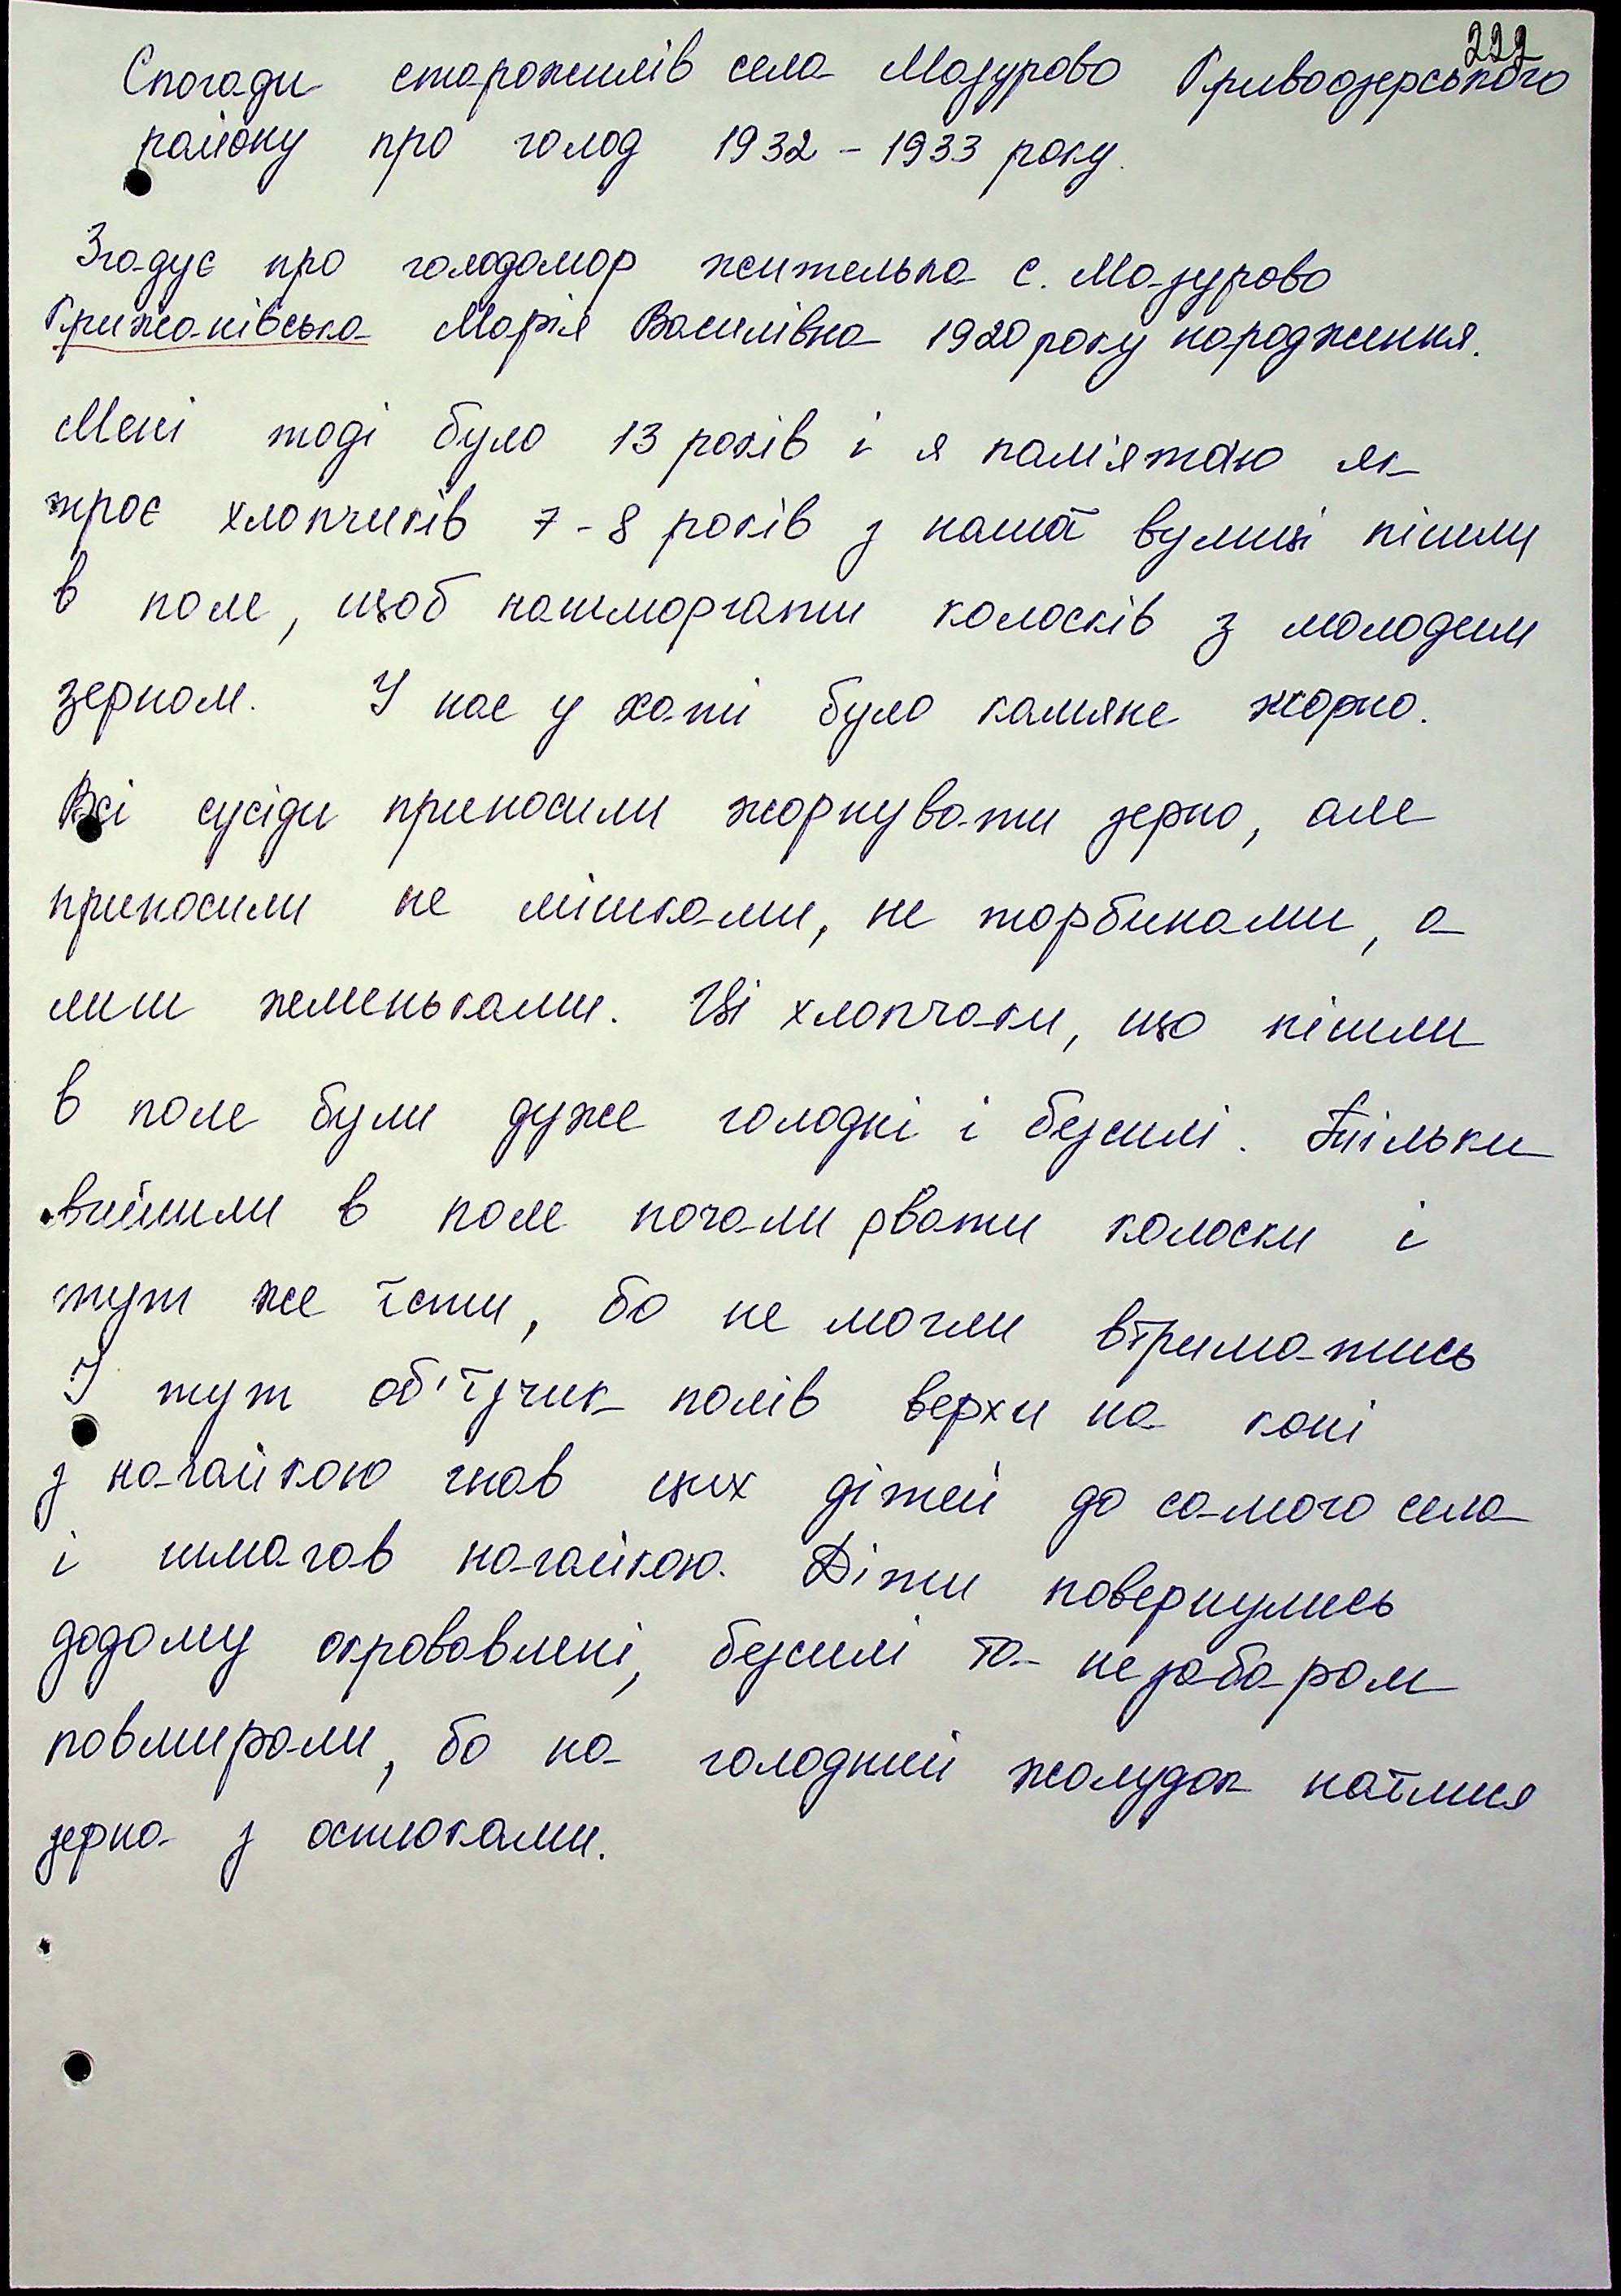 222
Спогади старожилів села Мазурово Кривоозерського
району про голод 1932 - 1933 року.
Згадує про голодомор жителька с. Мазурово
Крижанівська Марія Василівна 1920 року народження.
Мені тоді було 13 років і я пам'ятаю як
троє хлопчиків 7-8 років з нашої вулиці пішли
в поле, щоб нашморгати колосків з молодим
зерном. У нас у хаті було камяне жорно.
Всі сусіди приносили жорнувати зерно, але
приносили не мішками, не торбинами, а
лиш жменьками. Ці хлопчаки, що пішли
в поле були дуже голодні і безсилі. Тільки
вийшли в поле почали рвати колоски і
тут же їсти, бо не могли втриматись
І тут об'їзчик полів верхи на коні
з нагайкою гнав цих дітей до самого села
і шмагав нагайкою. Діти повернулись
додому окровавлені, безсилі та незабаром
повмирали, бо на голодний жолудок наїлися
зерна з остюками.